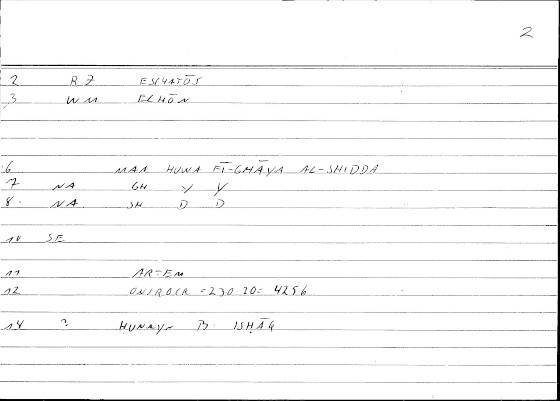 2
2 RZ ESCHATŌS
3 WM ECHŌN
6 MAN HUWA FĪ-GHĀYA AL-SHIDDA
7 NA GH Y Y
8. NA. SH D D
10 SE
11 ARTEM
12 ONIROCR = 230.20 = 4256
14 ? HUNAYN B. ISḤĀQ